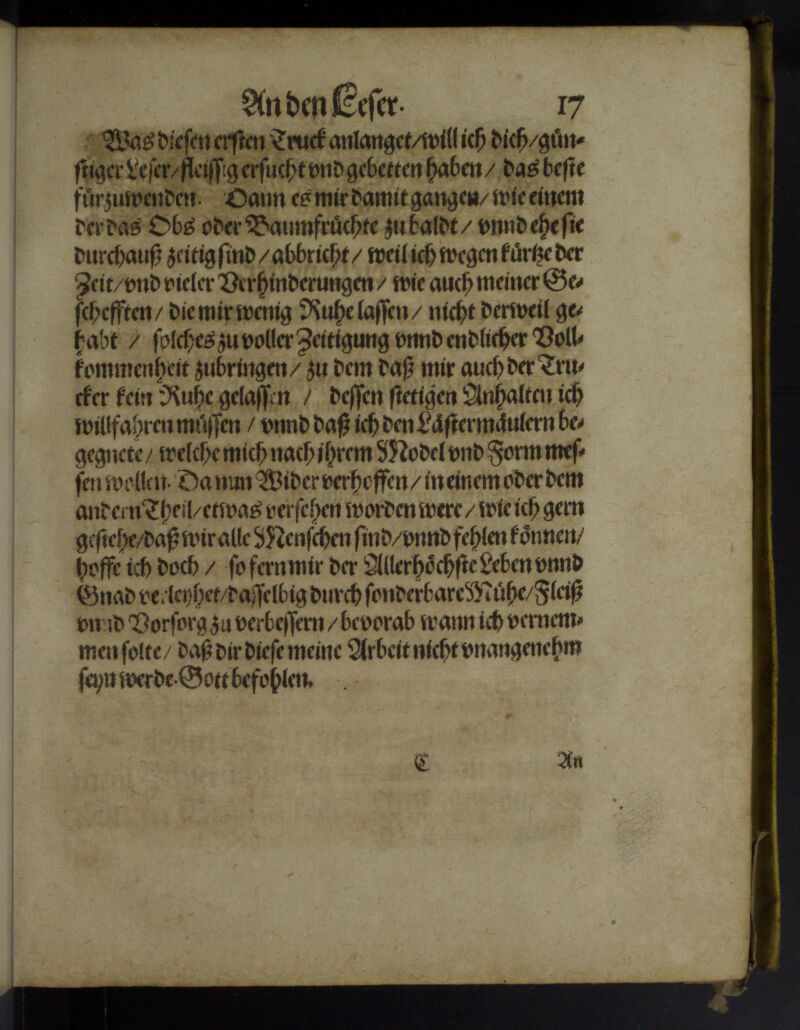 An den Leser. 17
Was diesen ersten Truck anlanget/will ich dich/gün-
stiger Leser/fleissig ersucht vnd gebetten haben/ das beste
fürzuwenden. Dann es mir damit gangen/ wie einem
der das Obs oder Baumfrüchte zu baldt/ vnnd ehe sie
durchauß zeitig sind/ abbricht/ weil ich wegen kürtze der
Zeit/vnd vieler Verhinderungen/ wie auch meiner Ge-
schefften/ die mir wenig Ruhe lassen/ nicht derweil ge-
habt / solches zu voller Zeitigung vnnd endlicher Voll-
kommenheit zubringen/ zu dem daß mir auch der Tru-
cker kein Ruhe gelassen / dessen stetigen Anhalten ich
willfahren müssen / vnnd daß ich den Lästermäulern be-
gegnete/ welche mich nach ihrem Model vnd Form mes-
sen wollen. Da nun Wider verhoffen/ in einem oder dem
andern Theil/etwas versehen worden were/ wie ich gern
gestehe/daß wir alle Menschen sind/vnnd fehlen können/
hoffe ich doch / so fern mir der Allerhöchste Leben vnnd
Gnad verleyhet/dasselbig durch sonderbare Mühe/Fleiß
vnnd Vorsorg zu verbessern/ bevorab wann ich vernem-
men solte/ daß dir diese meine Arbeit nicht vnangenehm
seyn werde. Gott befohlen.
C An